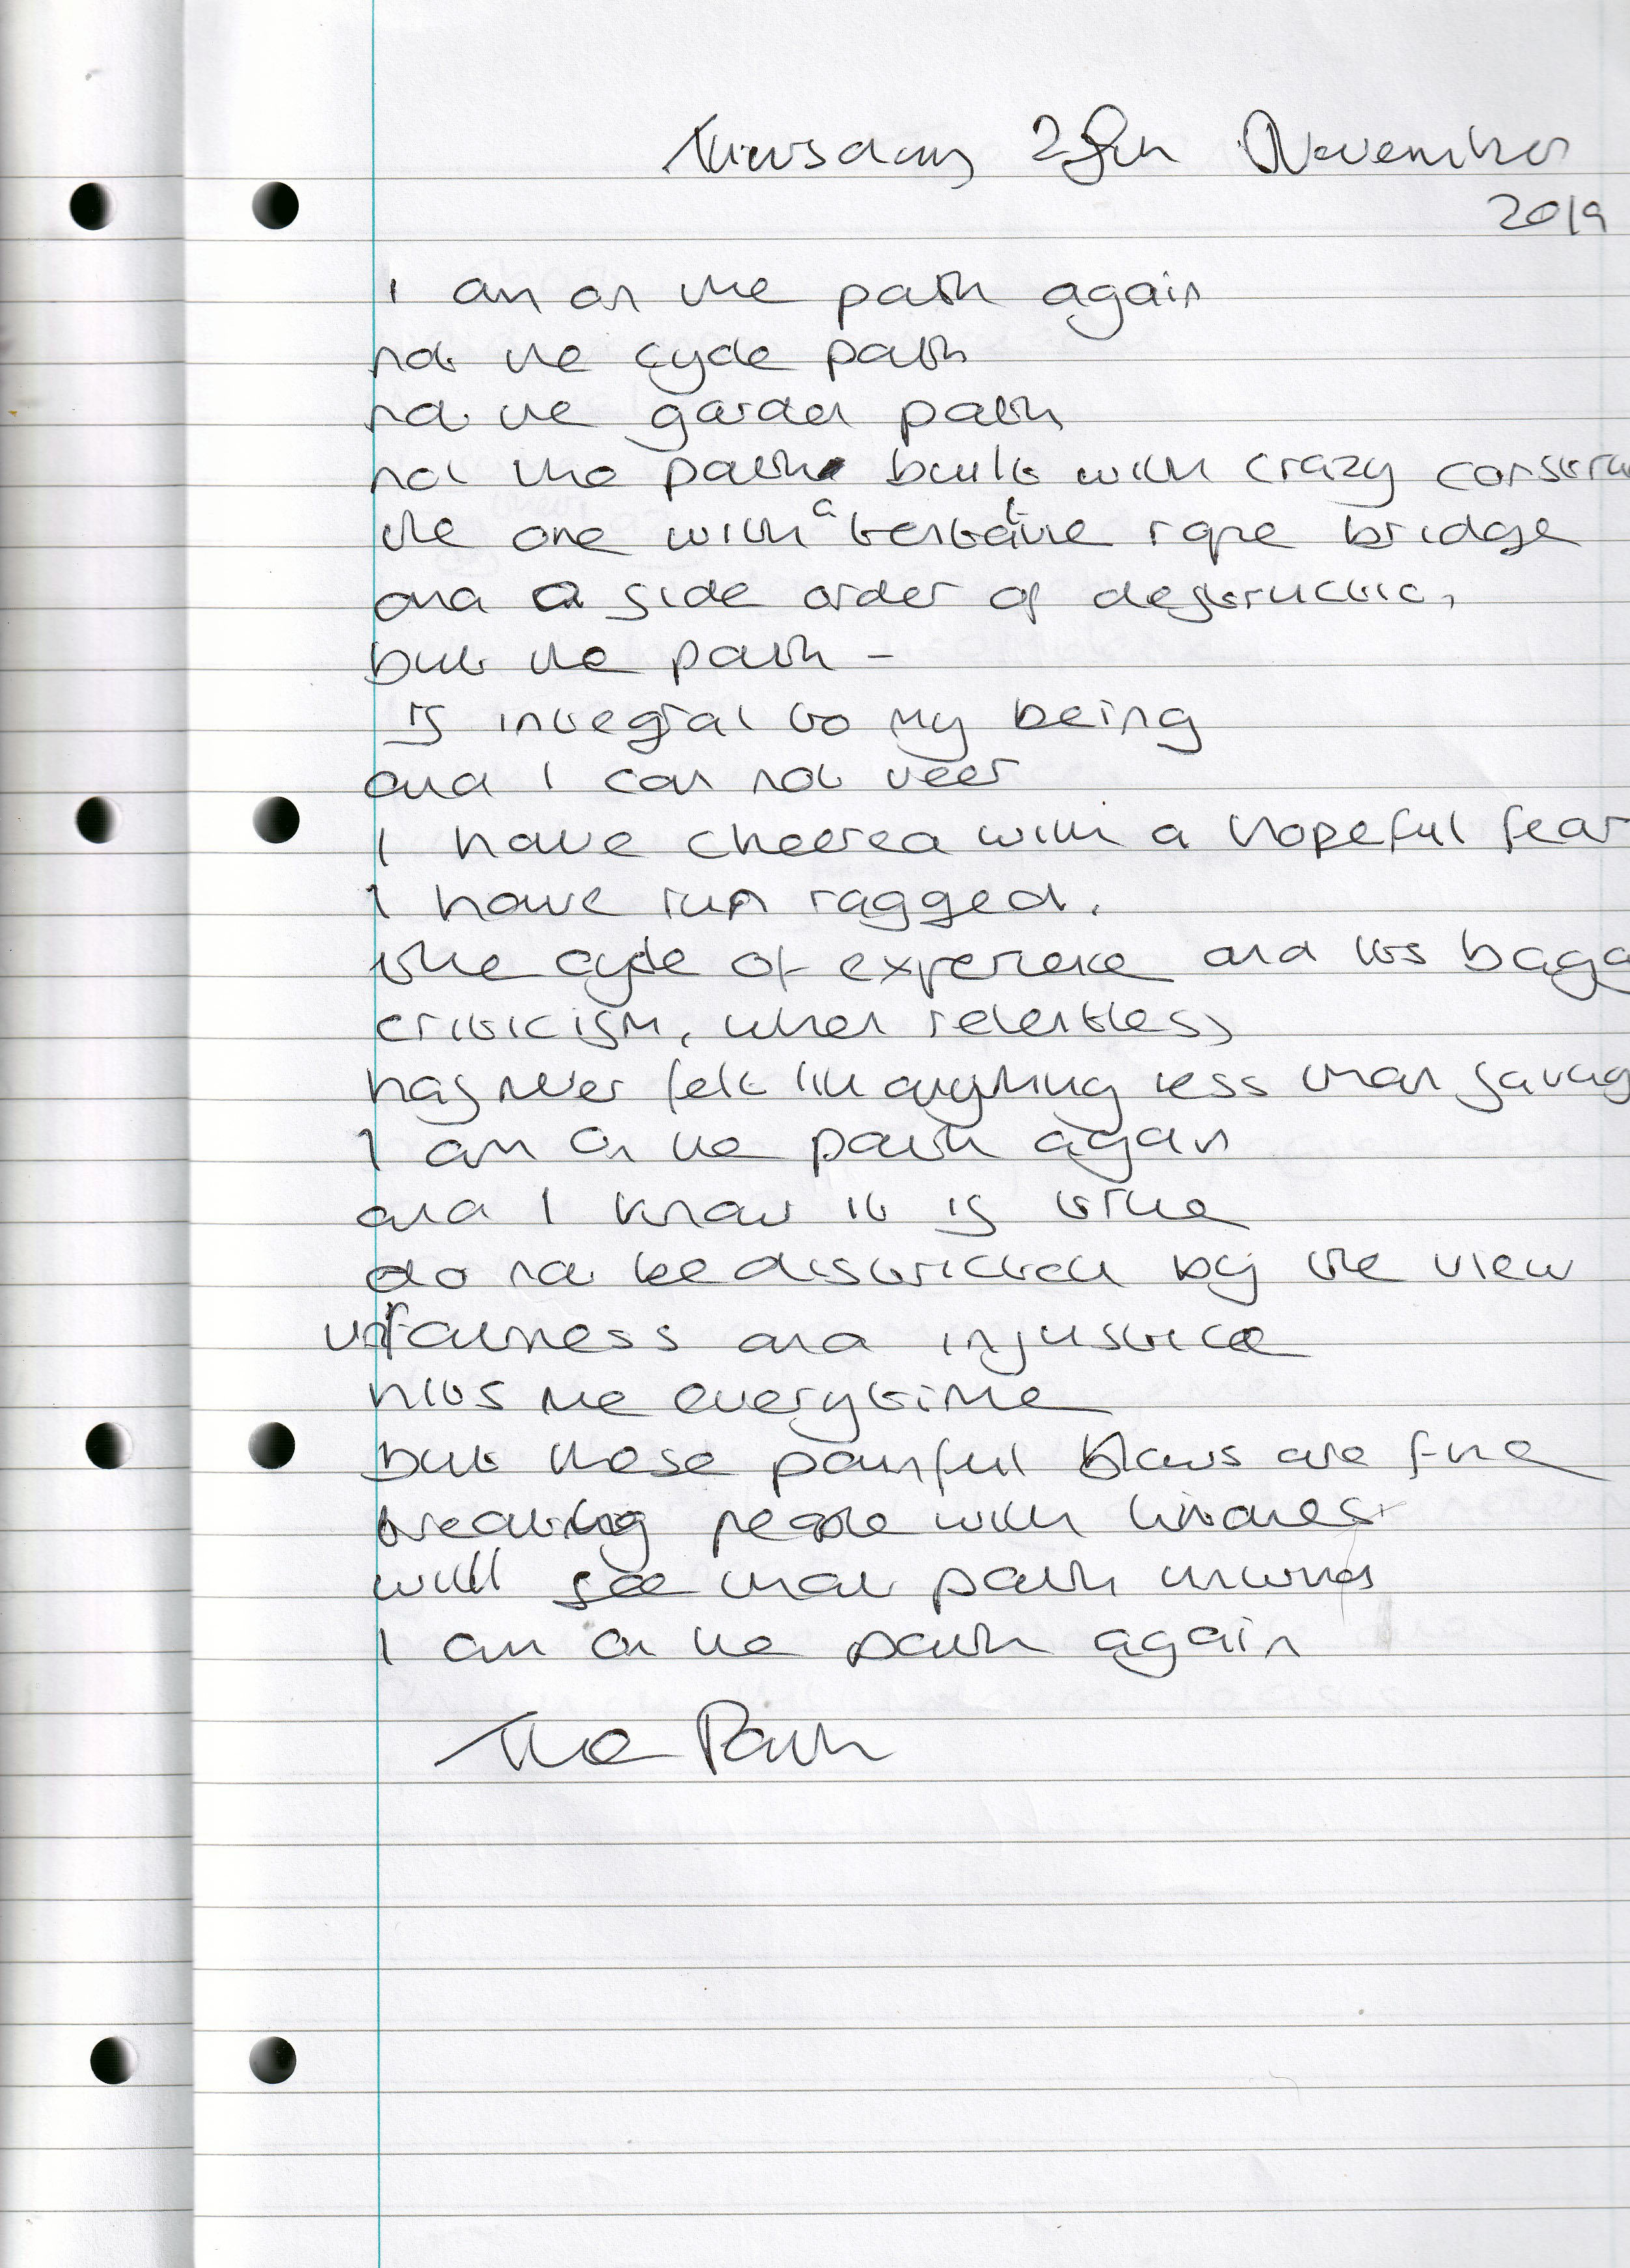 Thursday 28th November
2019
I am on the path again
not the cycle path
not the garden path
not the path built with crazy constru
the one with a tentative rope bridge
and a side order of destruction,
but the path -
is integral to my being
and I can not veer
I have cheered with a hopeful fear
I have run ragged.
the cycle of experience and its bagga
criticism, when relentless
has never felt like anything less than savag
I am on the path again
and I know it is true
do not be districted by the view
unfairness and injustice
hits me everytime
but those painful blows are fine
treating people with kindness
will see that path
I am on the path again
The Path